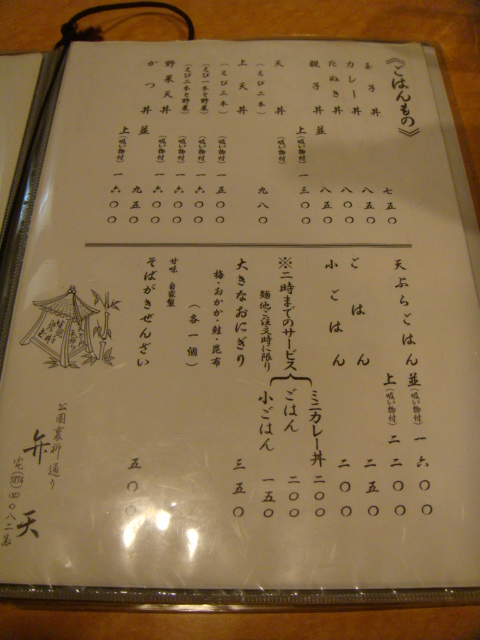 《ごはんもの》
玉子丼 七五〇
カレー丼 八五〇
たぬき丼 八〇〇
親子丼 並 八五〇
上(吸い物付) 一三〇〇
天丼(えび二本) 九八〇
上天丼
(えび二本)(吸い物付) 一五〇〇
(えび一本と野菜)(吸い物付) 一六〇〇
(えび二本と野菜)(吸い物付) 一六〇〇
野菜天丼(吸い物付) 一六〇〇
かつ丼 並 九五〇
上(吸い物付) 一六〇〇
天ぷらごはん 並(吸い物付) 一六〇〇
上(吸い物付) 二二〇〇
ごはん 二五〇
小ごはん 二〇〇
※二時までのサービス
麺他ご注文時に限り
ミニカレー丼 二〇〇
ごはん 二〇〇
小ごはん 一五〇
大きなおにぎり 三五〇
梅・おかか・鮭・昆布
(各一個)
甘味 自家製
そばがきぜんざい 五〇〇
公園裏斜通り
弁天